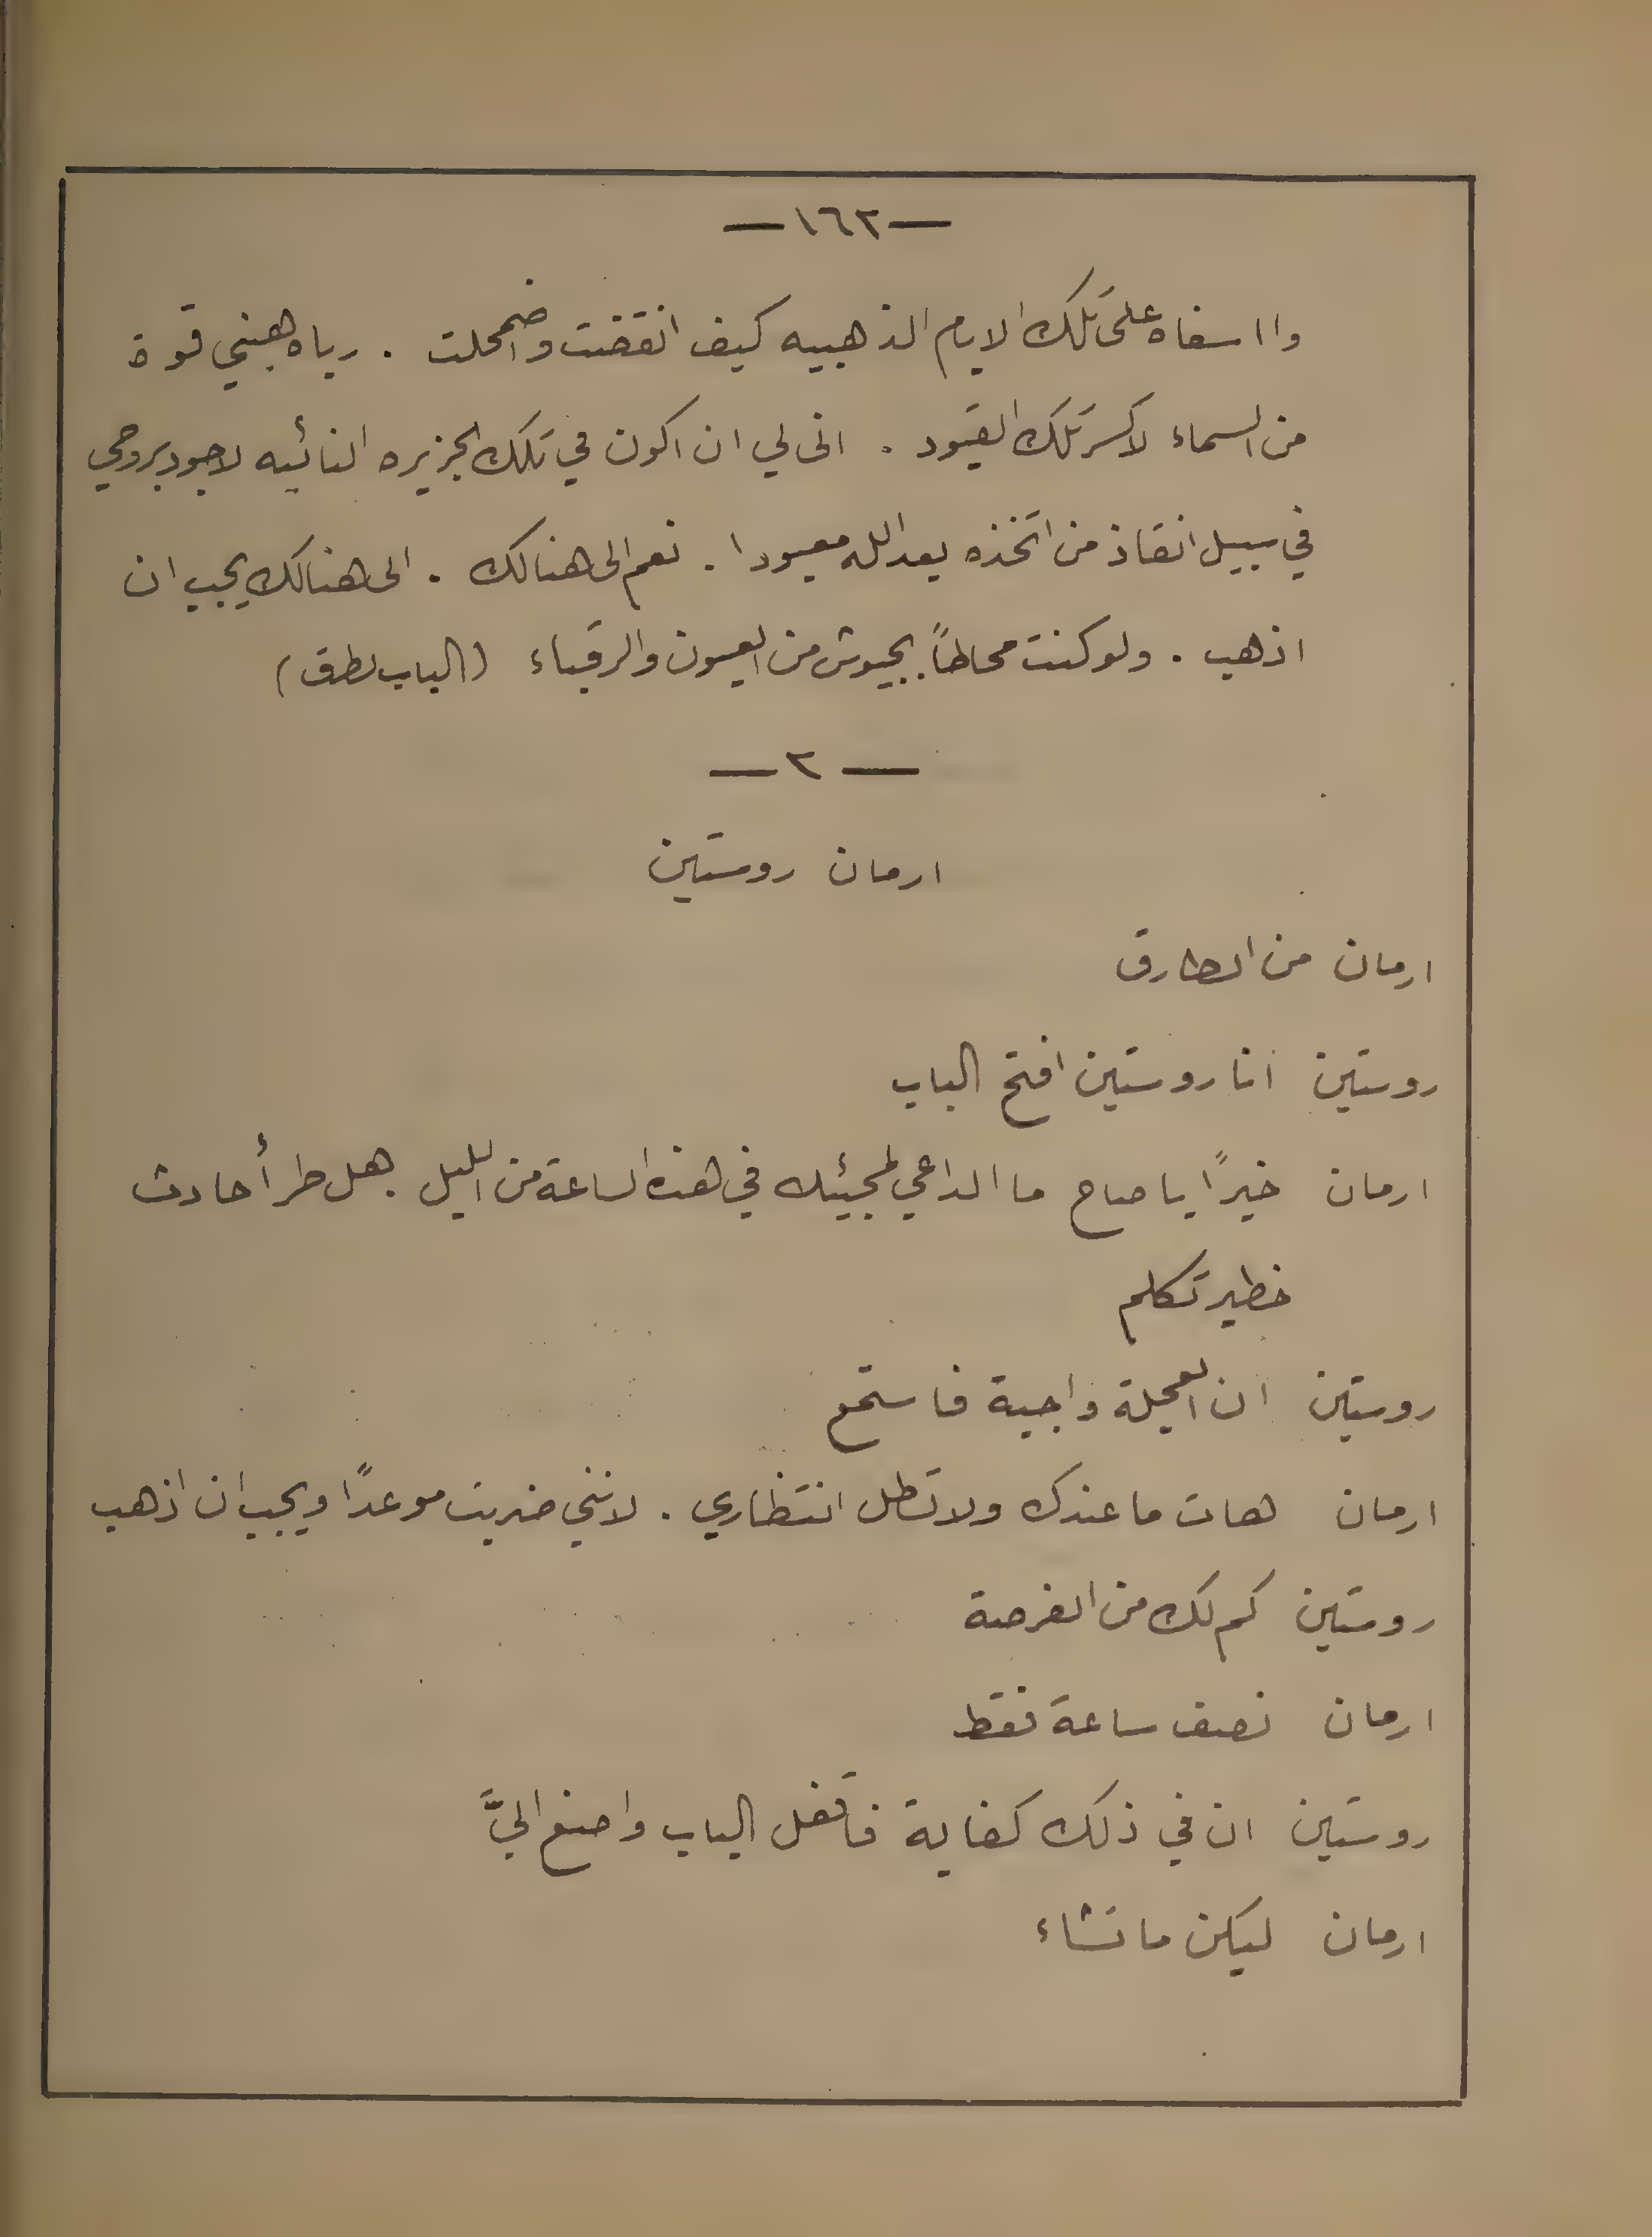 — ١٦٢ —
وا اسفاه على تلك الايام الذهبيه كيف انقضت واضمحلت . رباه هبني قوة
من السماء لاكسر تلك القيود . انى لي ان اكون في تلك الجزيره النائيه لاجود بروحي
في سبيل انقاذ من اتخذه بعد الله معبودا . نعم الى هنالك . الى هنالك يجب ان
اذهب . ولو كنت محاطاً بجيوش من العيون والرقباء (الباب يطرق)
— ٢ —
ارمان روستين
ارمان من الطارق
روستين انا روستين افتح الباب
ارمان خيرًا يا صاح ما الداعي لمجيئك في هذه الساعة من الليل . هل طرأ حادث
خطير تكلم
روستين ان العجلة واجبة فاستمع
ارمان هات ما عندك ولا تطل انتظاري . لانني ضربت موعدًا ويجب ان اذهب
روستين كم لك من الفرصة
ارمان نصف ساعة فقط
روستين ان في ذلك كفاية فاقفل الباب واصغ اليَّ
ارمان ليكن ما تشاء